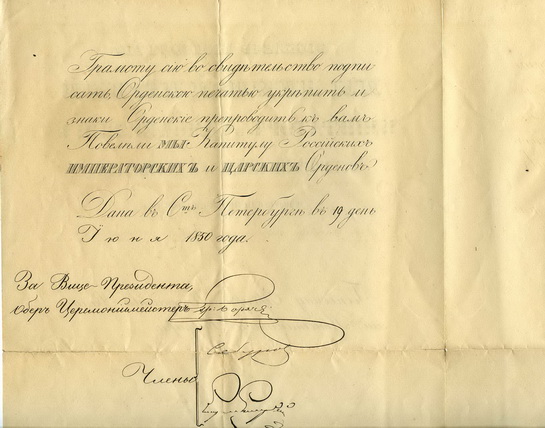 Грамоту сію во свидѣтельство подпи
сать, Орденскою печатью укрѣпить и
знаки Орденскіе препроводить къ вамъ
Повелѣли МЫ Капитулу Россійскихъ
ИМПЕРАТОРСКИХЪ и ЦАРСКИХЪ Орденовъ.
Дана въ Стъ. Петербургѣ въ 19 день
Іюня 1850 года.
За Вице-Президента,
Оберъ Церемоніймейстеръ гр: Ворацей
Сабуровъ
Члены